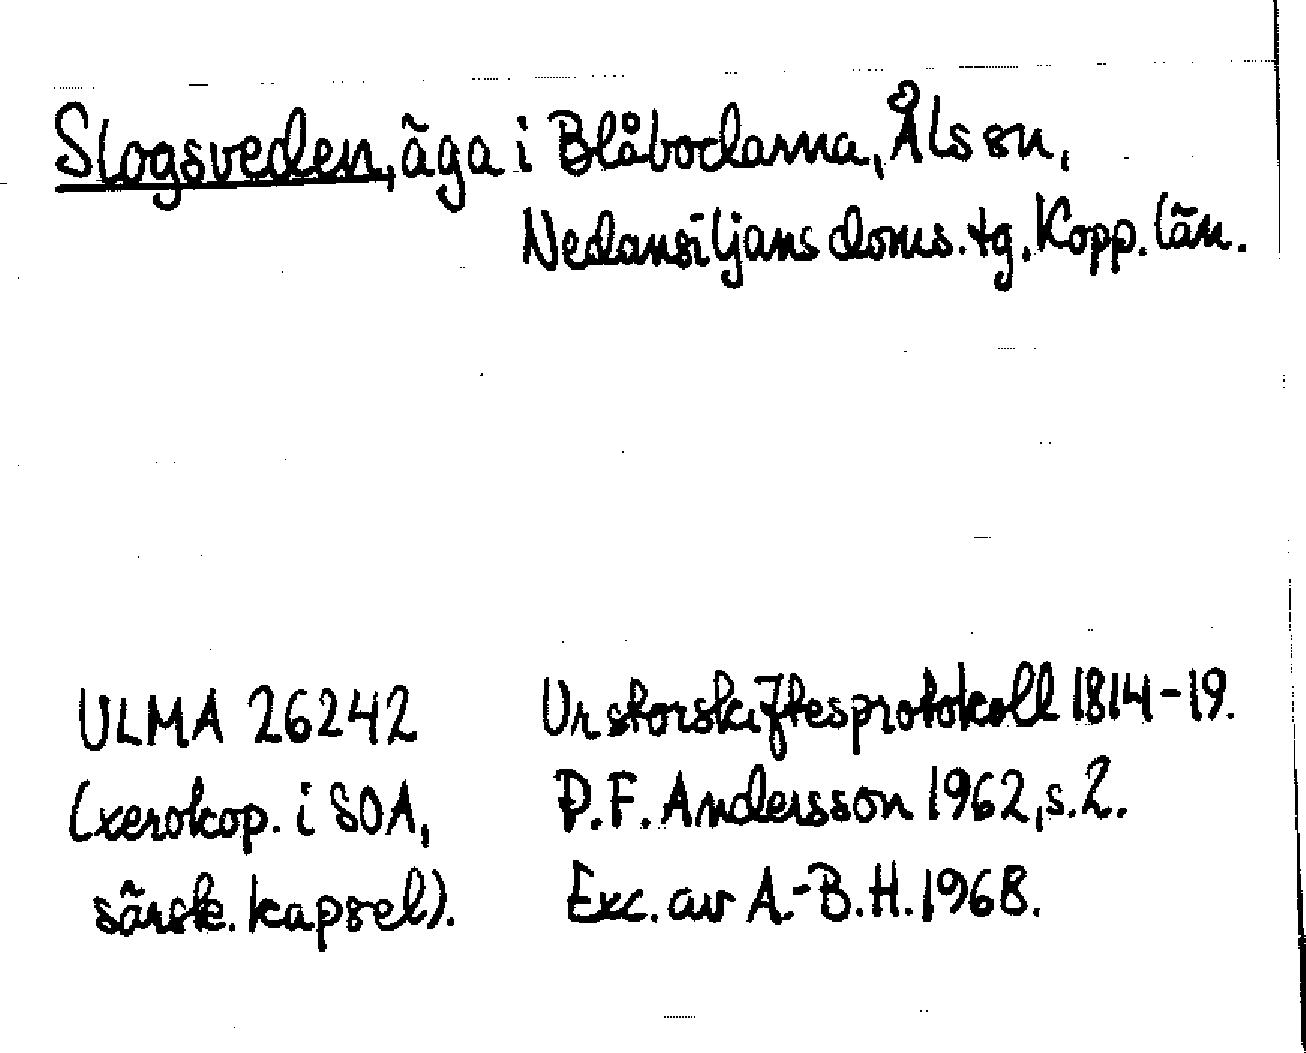 Slogsveden, äga i Blåbodarna, Åls sn,
Nedansiljans doms. tg. Kopp. län.
ULMA 26242
(xerokop. i SOA,
särsk. kapsel).
Ur storskiftesprotokoll 1814-19.
P.F. Andersson 1962, s. 2.
Exc. av A.-B.H. 1968.